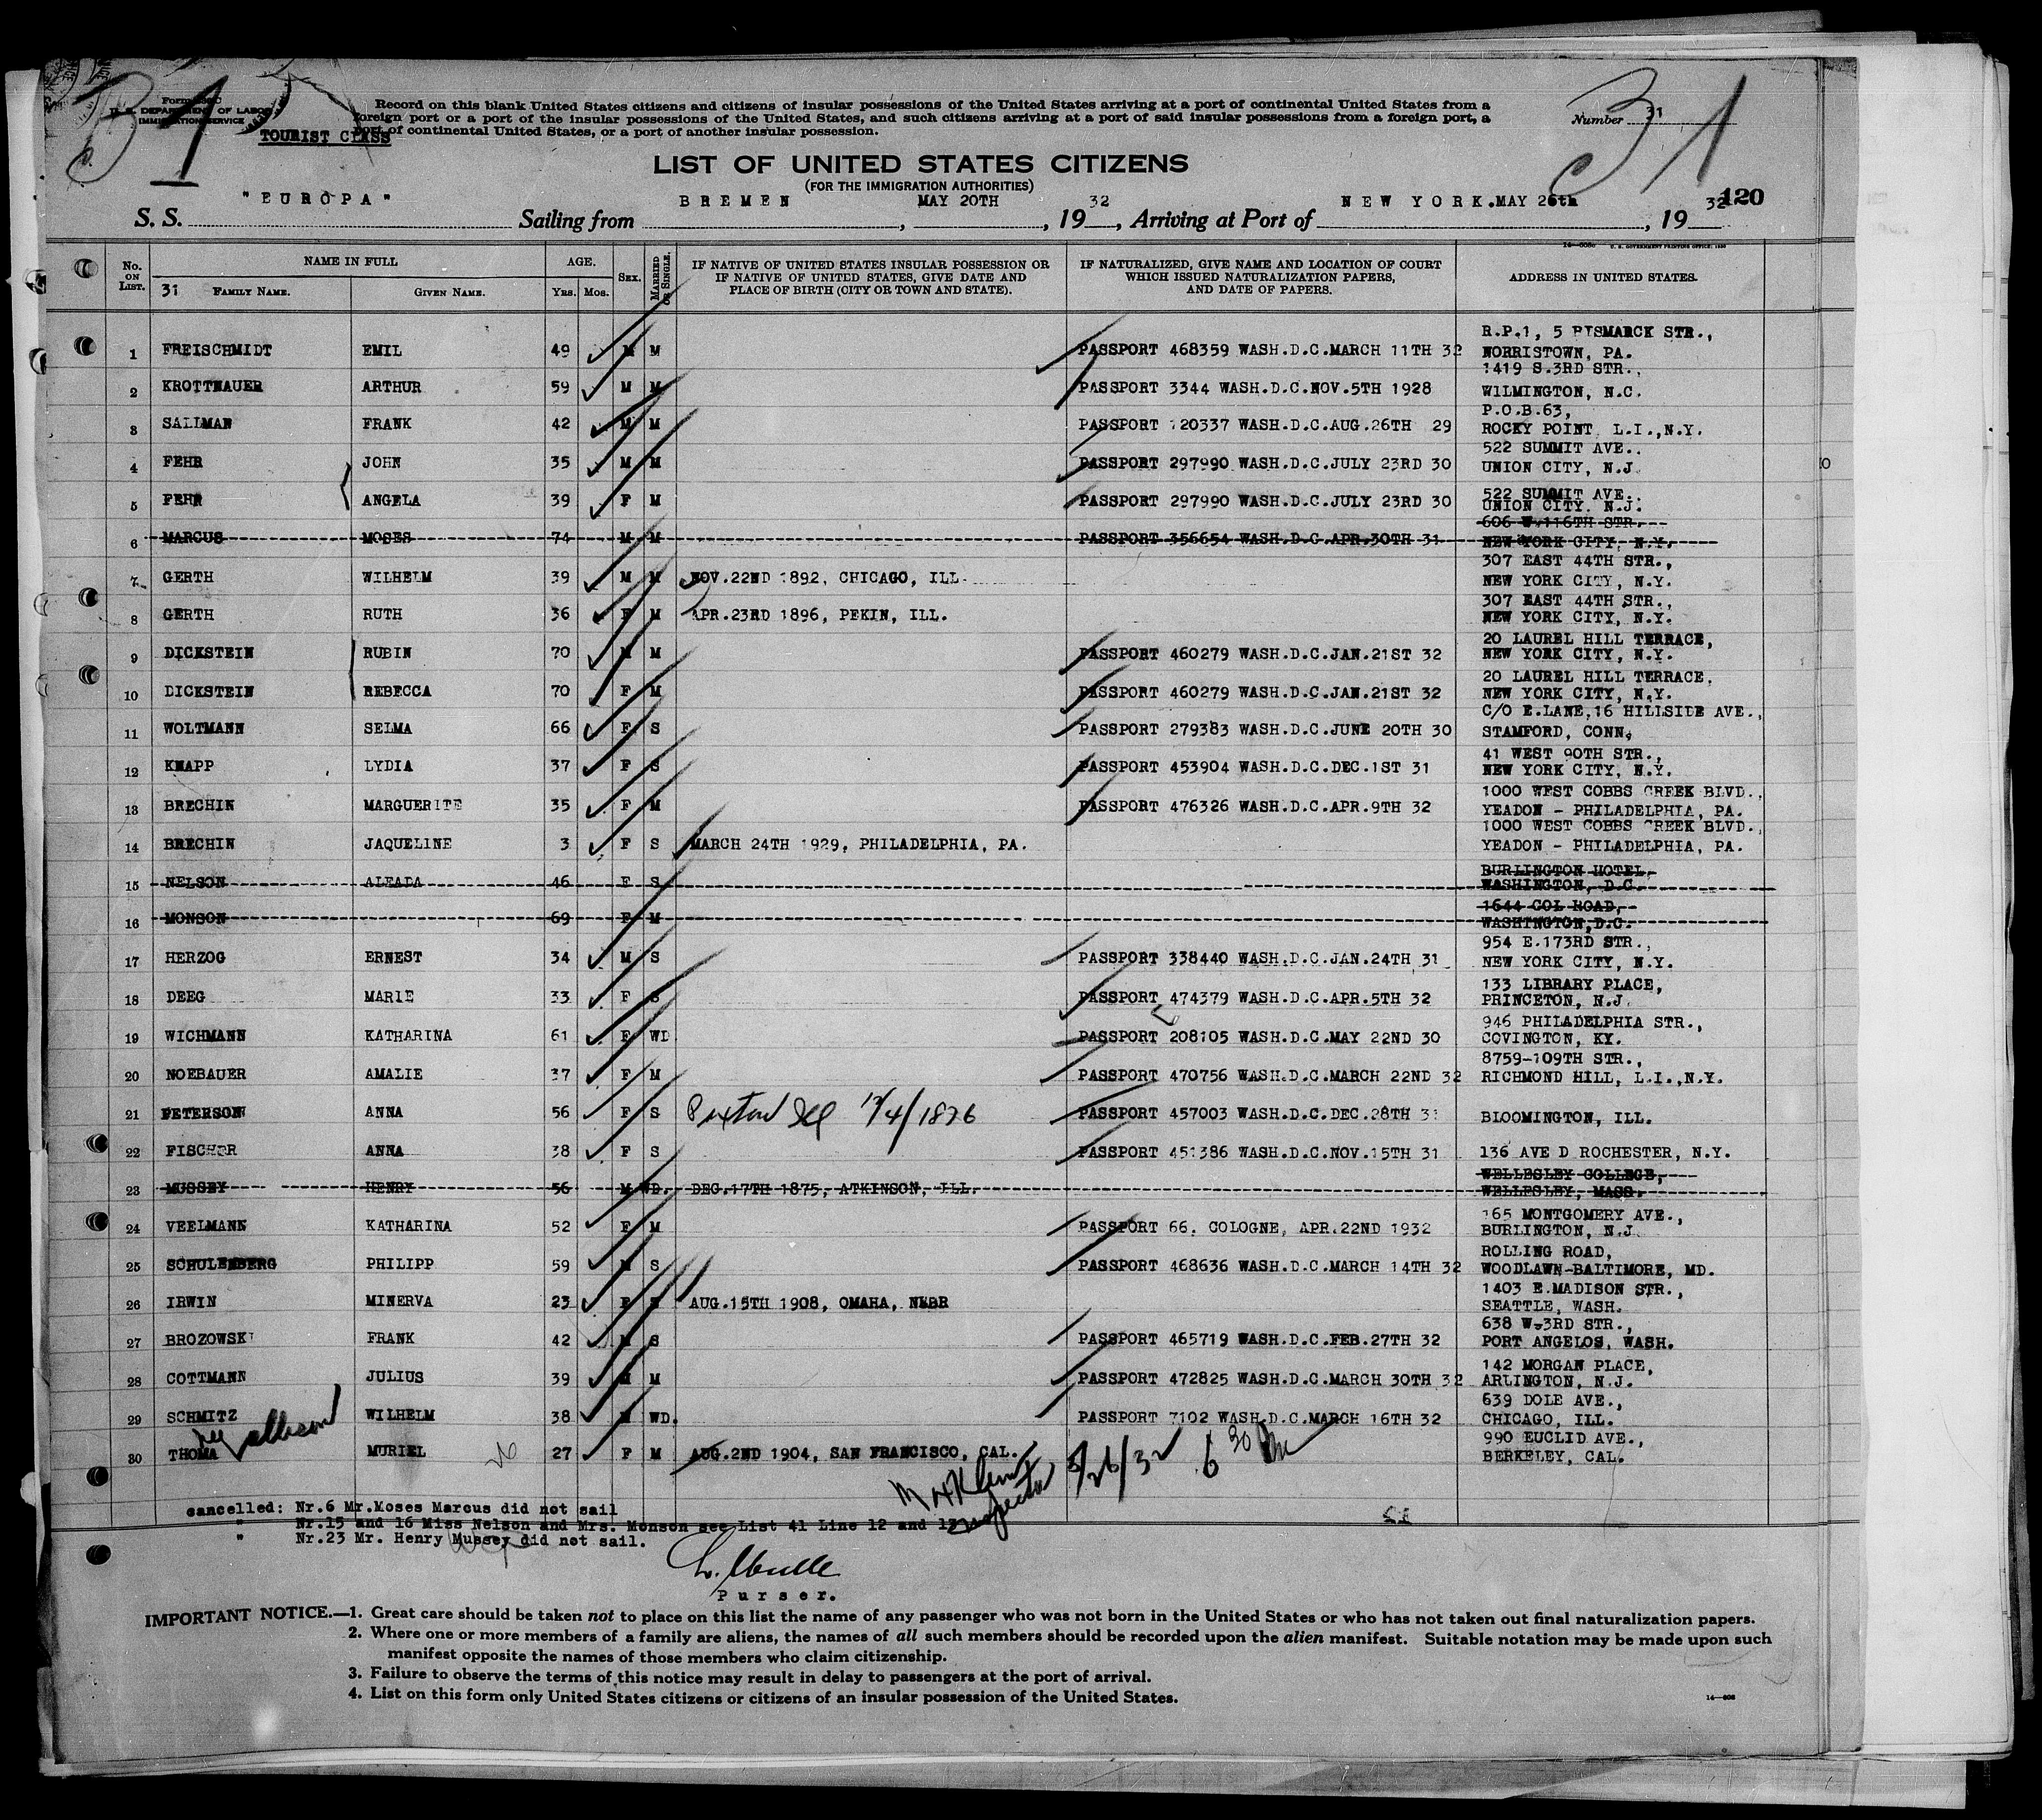 31
Form 630 C
U. S. DEPARTMENT OF LABOR
IMMIGRATION SERVICE
TOURIST CLASS
Record on this blank United States citizens and citizens of insular possessions of the United States arriving at a port of continental United States from a
foreign port or a port of the insular possessions of the United States, and such citizens arriving at a port of said insular possessions from a foreign port, a
port of continental United States, or a port of another insular possession.
Number 31
31
LIST OF UNITED STATES CITIZENS
(FOR THE IMMIGRATION AUTHORITIES)
120
S. S. "EUROPA" Sailing from BREMEN, MAY 20TH, 1932, Arriving at Port of NEW YORK.MAY 26th, 1932
16—608c U. S. GOVERNMENT PRINTING OFFICE: 1930
No. ON LIST. NAME IN FULL AGE. SEX. MARRIED OR SINGLE. IF NATIVE OF UNITED STATES INSULAR POSSESSION OR IF NATIVE OF UNITED STATES, GIVE DATE AND PLACE OF BIRTH (CITY OR TOWN AND STATE). IF NATURALIZED, GIVE NAME AND LOCATION OF COURT WHICH ISSUED NATURALIZATION PAPERS, AND DATE OF PAPERS. ADDRESS IN UNITED STATES.
31 FAMILY NAME. GIVEN NAME. YRS. MOS.
1 FREISCHMIDT EMIL 49 M M PASSPORT 468359 WASH.D.C.MARCH 11TH 32 R.P.1, 5 BISMARCK STR., NORRISTOWN, PA.
2 KROTTNAUER ARTHUR 59 M M PASSPORT 3344 WASH.D.C.NOV.5TH 1928 1419 S.3RD STR., WILMINGTON, N.C.
3 SALLMAN FRANK 42 M M PASSPORT 120337 WASH.D.C.AUG.26TH 29 P.O.B.63, ROCKY POINT L.I.,N.Y.
4 FEHR JOHN 35 M M PASSPORT 297990 WASH.D.C.JULY 23RD 30 522 SUMMIT AVE., UNION CITY, N.J.
5 FEHR ANGELA 39 F M PASSPORT 297990 WASH.D.C.JULY 23RD 30 522 SUMMIT AVE., UNION CITY, N.J.
6 MARCUS MOSES 74 M M PASSPORT 356654 WASH.D.C.APR.30TH 31 606 W.116TH STR. NEW YORK CITY, N.Y.
7 GERTH WILHELM 39 M M NOV.22ND 1892, CHICAGO, ILL. 307 EAST 44TH STR., NEW YORK CITY, N.Y.
8 GERTH RUTH 36 F M APR.23RD 1896, PEKIN, ILL. 307 EAST 44TH STR., NEW YORK CITY, N.Y.
9 DICKSTEIN RUBIN 70 M M PASSPORT 460279 WASH.D.C.JAN.21ST 32 20 LAUREL HILL TERRACE, NEW YORK CITY, N.Y.
10 DICKSTEIN REBECCA 70 F M PASSPORT 460279 WASH.D.C.JAN.21ST 32 20 LAUREL HILL TERRACE, NEW YORK CITY, N.Y.
11 WOLTMANN SELMA 66 F S PASSPORT 279383 WASH.D.C.JUNE 20TH 30 C/O E.LANE,16 HILLSIDE AVE., STAMFORD, CONN.
12 KNAPP LYDIA 37 F S PASSPORT 453904 WASH.D.C.DEC.1ST 31 41 WEST 90TH STR., NEW YORK CITY, N.Y.
13 BRECHIN MARGUERITE 35 F M PASSPORT 476326 WASH.D.C.APR.9TH 32 1000 WEST COBBS CREEK BLVD., YEADON - PHILADELPHIA, PA.
14 BRECHIN JAQUELINE 3 F S MARCH 24TH 1929, PHILADELPHIA, PA. 1000 WEST COBBS CREEK BLVD., YEADON - PHILADELPHIA, PA.
15 NELSON ALEADA 46 F S BURLINGTON HOTEL, WASHINGTON, D.C.
16 MONSON 69 F M 1644 COL ROAD, WASHINGTON,D.C.
17 HERZOG ERNEST 34 M S PASSPORT 338440 WASH.D.C.JAN.24TH 31 954 E.173RD STR., NEW YORK CITY, N.Y.
18 DEEG MARIE 33 F S PASSPORT 474379 WASH.D.C.APR.5TH 32 133 LIBRARY PLACE, PRINCETON, N.J.
19 WICHMANN KATHARINA 61 F WD PASSPORT 208105 WASH.D.C.MAY 22ND 30 946 PHILADELPHIA STR., COVINGTON, KY.
20 NOEBAUER AMALIE 37 F M PASSPORT 470756 WASH.D.C.MARCH 22ND 32 8759-109TH STR., RICHMOND HILL, L.I.,N.Y.
21 PETERSON ANNA 56 F S Paxton Ill 12/4/1876 PASSPORT 457003 WASH.D.C.DEC.28TH 31 BLOOMINGTON, ILL.
22 FISCHER ANNA 38 F S PASSPORT 451386 WASH.D.C.NOV.15TH 31 136 AVE D ROCHESTER, N.Y.
23 MUSSEY HENRY 56 M WD. DEC.17TH 1875, ATKINSON, ILL. WELLESLEY COLLEGE, WELLESLEY, MASS.
24 VEELMANN KATHARINA 52 F M PASSPORT 66, COLOGNE, APR.22ND 1932 165 MONTGOMERY AVE., BURLINGTON, N.J.
25 SCHULENBERG PHILIPP 59 M S PASSPORT 468636 WASH.D.C.MARCH 14TH 32 ROLLING ROAD, WOODLAWN-BALTIMORE, MD.
26 IRWIN MINERVA 23 F S AUG.15TH 1908, OMAHA, NEBR 1403 E.MADISON STR., SEATTLE, WASH.
27 BROZOWSKI FRANK 42 M S PASSPORT 465719 WASH.D.C.FEB.27TH 32 638 W-3RD STR., PORT ANGELOS, WASH.
28 COTTMANN JULIUS 39 M M PASSPORT 472825 WASH.D.C.MARCH 30TH 32 142 MORGAN PLACE, ARLINGTON, N.J.
29 SCHMITZ WILHELM 38 M WD. PASSPORT 7102 WASH.D.C.MARCH 16TH 32 639 DOLE AVE., CHICAGO, ILL.
30 THOMA MURIEL 27 F M AUG.2ND 1904, SAN FRANCISCO, CAL. 990 EUCLID AVE., BERKELEY, CAL.
5/26/32 6 30 PM
Inspector
cancelled: Nr.6 Mr.Moses Marcus did not sail
" Nr.15 and 16 Miss Nelson and Mrs. Monson see List 41 Line 12 and 13
" Nr.23 Mr. Henry Mussey did not sail.
Purser.
IMPORTANT NOTICE.—1. Great care should be taken not to place on this list the name of any passenger who was not born in the United States or who has not taken out final naturalization papers.
2. Where one or more members of a family are aliens, the names of all such members should be recorded upon the alien manifest. Suitable notation may be made upon such
manifest opposite the names of those members who claim citizenship.
3. Failure to observe the terms of this notice may result in delay to passengers at the port of arrival.
4. List on this form only United States citizens or citizens of an insular possession of the United States.
14—608